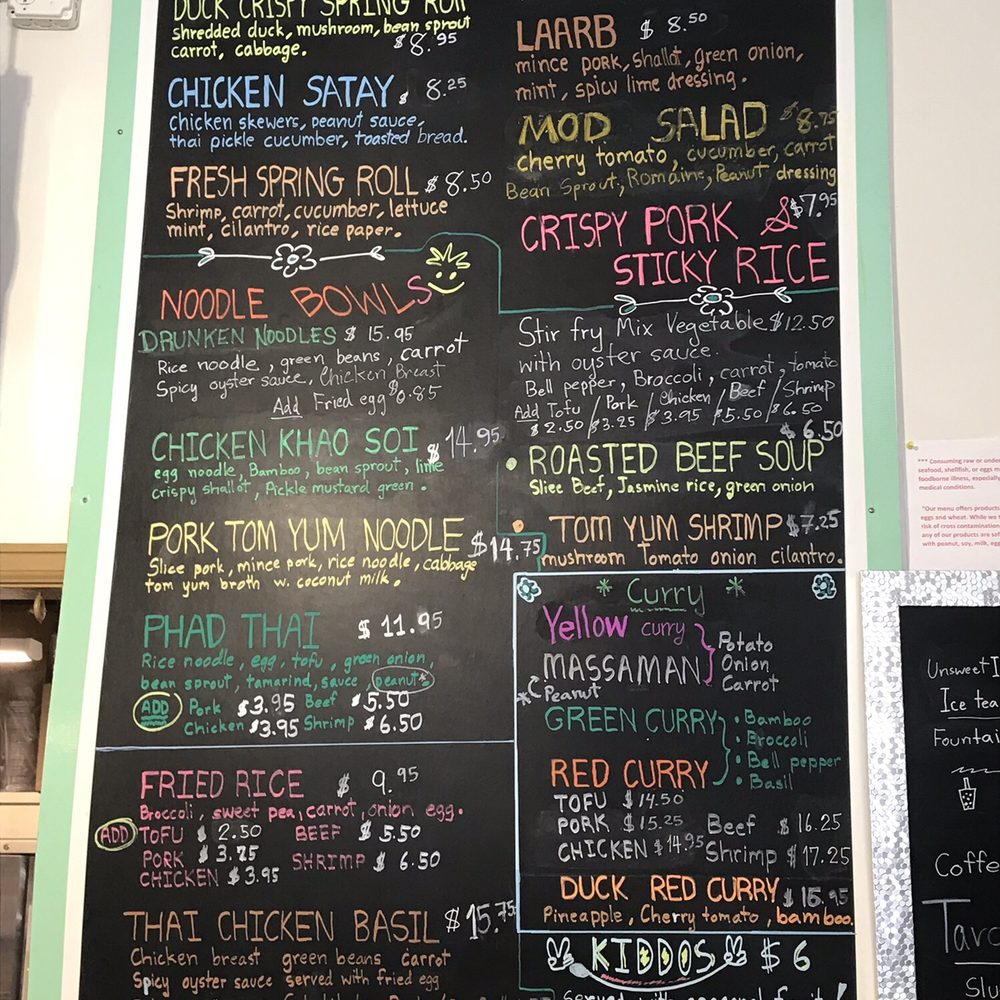 DUCK CRISPY SPRING ROLL
shredded duck, mushroom, bean sprout
carrot, cabbage. $8.95
CHICKEN SATAY $ 8.25
Chicken skewers, peanut sauce,
thai pickle cucumber, toasted bread.
FRESH SPRING ROLL $8.50
Shrimp, carrot, cucumber, lettuce
mint, cilantro, rice paper.
NOODLE BOWLS
DRUNKEN NOODLES $15.95
Rice noodle, green beans, carrot
Spicy oyster sauce, Chicken Breast
Add Fried egg $0.85
CHICKEN KHAO SOI $14.95
egg noodle, Bamboo, bean sprout, lime
crispy shallot, Pickle mustard green.
PORK TOM YUM NOODLE $14.75
Slice pork, mince pork, rice noodle, cabbage
tom yum broth w. coconut milk.
PHAD THAI $ 11.95
Rice noodle, egg, tofu, green onion,
bean sprout, tamarind, sauce, peanut*
ADD Pork $3.95 Beef $5.50
Chicken $3.95 Shrimp $6.50
FRIED RICE $ 9.95
Broccoli, sweet pea, carrot, onion egg.
ADD TOFU $ 2.50 BEEF $ 5.50
PORK $ SHRIMP $ 6.50
CHICKEN $3.95
THAI CHICKEN BASIL $15.75
Chicken breast green beans carrot
Spicy oyster sauce served with fried egg
LAARB $ 8.50
mince pork, shallot, green onion,
mint, spicy lime dressing.
MOD SALAD $8.75
cherry tomato, cucumber, carrot
Bean Sprout, Romaine, Peanut dressing
CRISPY PORK & $7.95
STICKY RICE
Stir fry Mix Vegetable $12.50
with oyster sauce.
Bell pepper, Broccoli, carrot, tomato
Add Tofu / Pork / Chicken / Beef / Shrimp
$2.50 / $3.25 / $3.95 / $5.50 / $6.50
$6.50
ROASTED BEEF SOUP
Sliee Beef, Jasmine rice, green onion
TOM YUM SHRIMP $7.25
mushroom Tomato onion cilantro.
* Curry *
Yellow curry
MASSAMAN
* Peanut
Potato
Onion
Carrot
GREEN CURRY
RED CURRY
• Bamboo
• Broccoli
• Bell pepper
• Basil
TOFU $14.50
PORK $15.25 Beef $16.25
CHICKEN $14.95 Shrimp $17.25
DUCK RED CURRY $15.95
Pineapple, Cherry tomato, bamboo.
KIDDOS $6
served with seasonal fruit!
*** Consuming raw or unde
seafood, shellfish, or eggs m
foodborne illness, especially
medical conditions.
"Our menu offers products
eggs and wheat. While we t
risk of cross contamination
any of our products are saf
with peanut, soy, milk, egg
Unsweet I
Ice tea
Fountai
Coffe
Taro
Slu